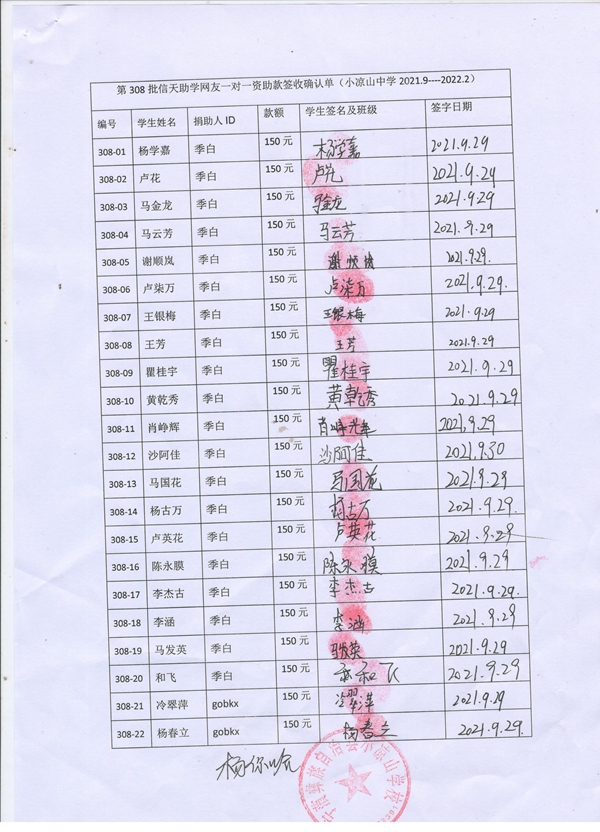 第 308 批信天助学网友一对一资助款签收确认单（小凉山中学 2021.9----2022.2）
编号 学生姓名 捐助人 ID 款额 学生签名及班级 签字日期
308-01 杨学嘉 季白 150 元 杨学嘉 2021.9.29
308-02 卢花 季白 150 元 卢花 2021.9.29
308-03 马金龙 季白 150 元 马金龙 2021.9.29
308-04 马云芳 季白 150 元 马云芳 2021.9.29
308-05 谢顺岚 季白 150 元 谢顺岚 2021.9.29.
308-06 卢柒万 季白 150 元 卢柒万 2021.9.29.
308-07 王银梅 季白 150 元 王银梅 2021.9.29
308-08 王芳 季白 150 元 王芳 2021.9.29
308-09 瞿桂宇 季白 150 元 瞿桂宇 2021.9.29
308-10 黄乾秀 季白 150 元 黄乾秀 2021.9.29
308-11 肖峥辉 季白 150 元 肖峥辉 2021.9.29
308-12 沙阿佳 季白 150 元 沙阿佳 2021.9.30
308-13 马国花 季白 150 元 马国花 2021.9.29
308-14 杨古万 季白 150 元 杨古万 2021.9.29.
308-15 卢英花 季白 150 元 卢英花 2021.9.29
308-16 陈永膜 季白 150 元 陈永膜 2021.9.29
308-17 李杰古 季白 150 元 李杰古 2021.9.29.
308-18 李涵 季白 150 元 李涵 2021.9.29
308-19 马发英 季白 150 元 马发英 2021.9.29
308-20 和飞 季白 150 元 和飞 2021.9.29
308-21 冷翠萍 gobkx 150 元 冷翠萍 2021.9.29
308-22 杨春立 gobkx 150 元 杨春立 2021.9.29.
宁蒗彝族自治县小凉山学校